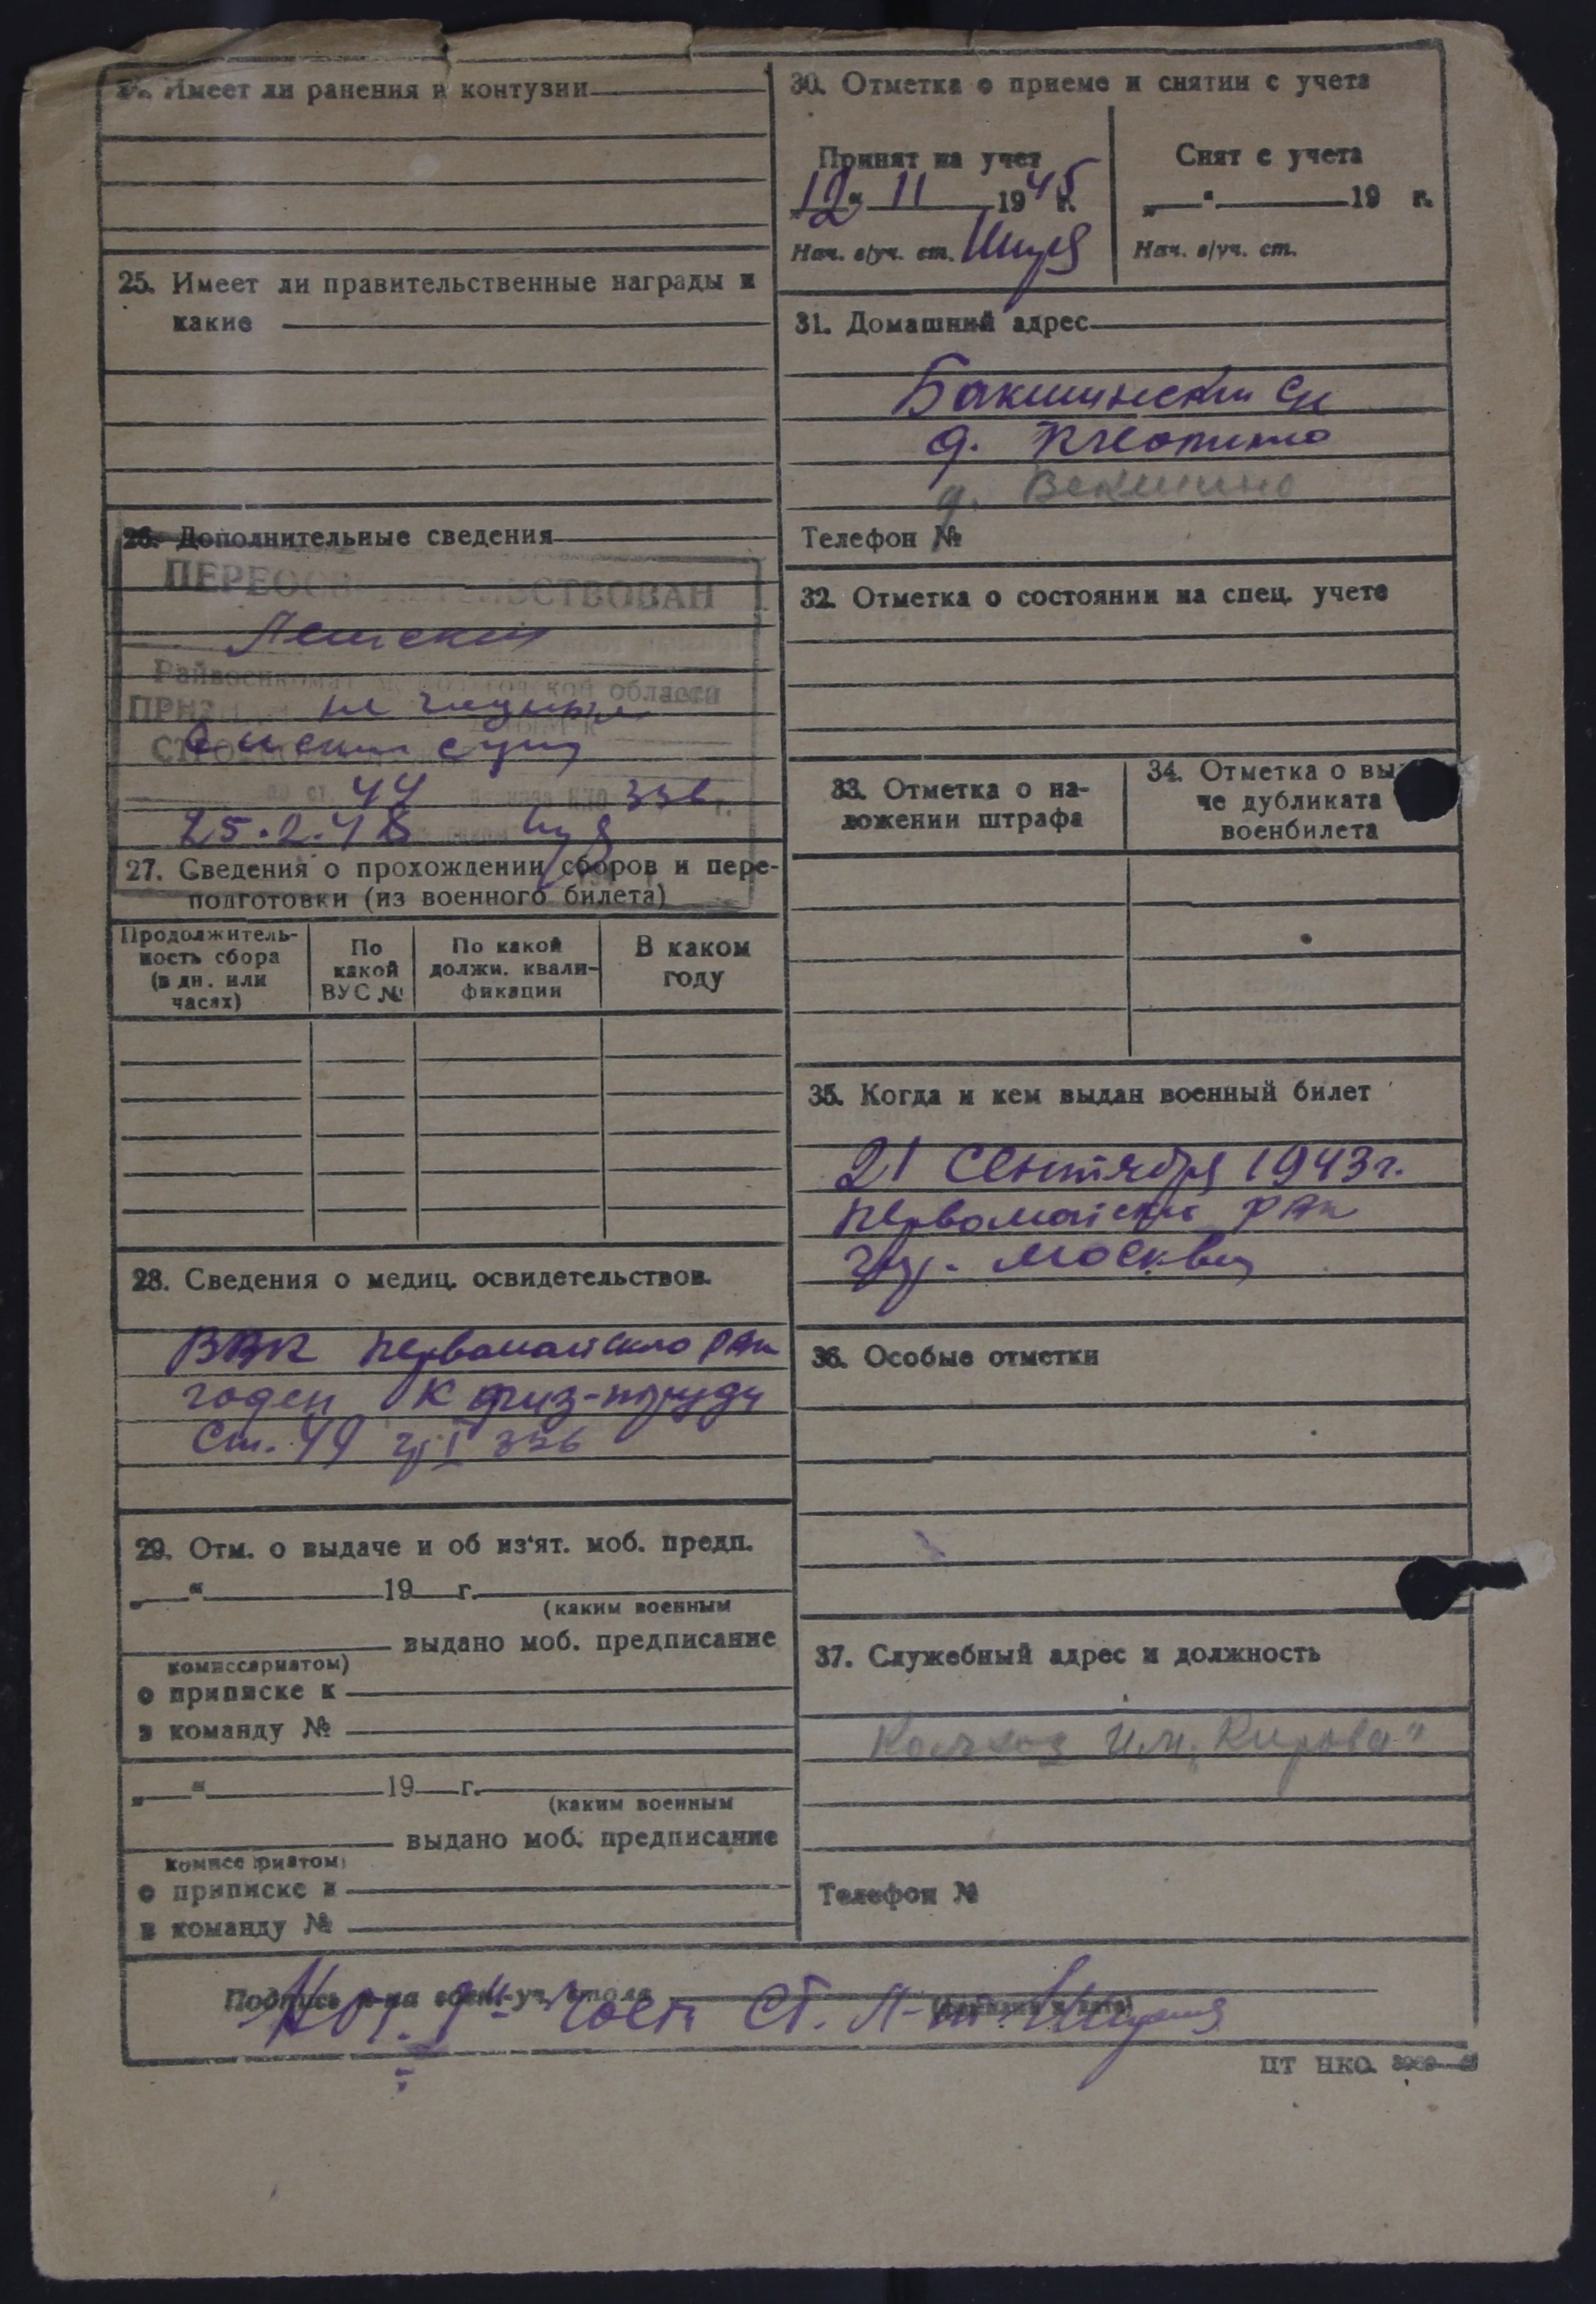 Имеет ли ранения и контузии
25. Имеет ли правительственные награды и
какие
26. Дополнительные сведения
ПЕРЕОСВИДЕТЕЛЬСТВОВАН
Райвоенкомат области
44 336
25.2.48
27. Сведения о прохождении сборов и пере-
подготовки (из военного билета)
Продолжитель-
ность сбора
(в дн. или
часах)
По
какой
ВУС №
По какой
должн. квали-
фикации
В каком
году
28. Сведения о медиц. освидетельствов.
ВВК Первомайского РВк
годен к физ-труду
Ст. 49 гр I 336
29. Отм. о выдаче и об из'ят. моб. предп.
„ “ 19 г.
(каким военным
выдано моб. предписание
комиссариатом)
о приписке к
в команду №
„ “ 19 г.
(каким военным
выдано моб. предписание
комиссариатом)
о приписке к
в команду №
30. Отметка о приеме и снятии с учета
Принят на учет
„12“ 11 1945 г.
Нач. в/уч. ст.
Снят с учета
„ “ 19 г.
Нач. в/уч. ст.
31. Домашний адрес
Бакшински с/с
д.
д. Векшино
Телефон №
32. Отметка о состоянии на спец. учете
33. Отметка о на-
ложении штрафа
34. Отметка о вы
че дубликата
военбилета
35. Когда и кем выдан военный билет
21 Сентября 1943 г.
Первомайски РВк
гор. Москвы
36. Особые отметки
37. Служебный адрес и должность
Колхоз им. „Кирова"
Телефон №
Подпись н-ка воен.-уч. стола
Нач. части Ст. Л-нт
ЦТ НКО